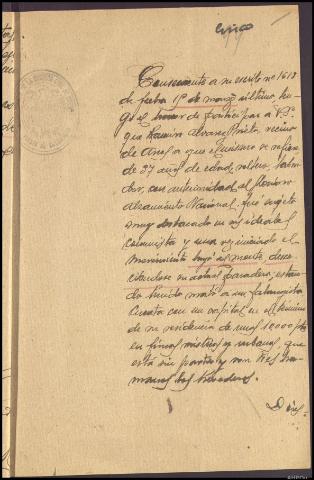 cinco
Consecuente a su escrito nº 1618
de fecha 1º de marzo último, ten-
go el honor de participar a V.S.
que Ramiro Alvarez Prieto, vecino
de que el mismo se refiere
de 37 años de edad, soltero, labra-
dor, con anterioridad al Glorioso
Alzamiento Nacional, fué sujeto
muy destacado en sus ideales
comunista y una vez iniciado el
movimiento huyó al monte desco-
nociendose su actual paradero,
do huido mató a un falangista
Cuenta con un capital en el término
de su residencia de unas 10.000 pts
en fincas rústicas y urbanas, que
está sin partir y son tres her-
manos los herederos.
Dios